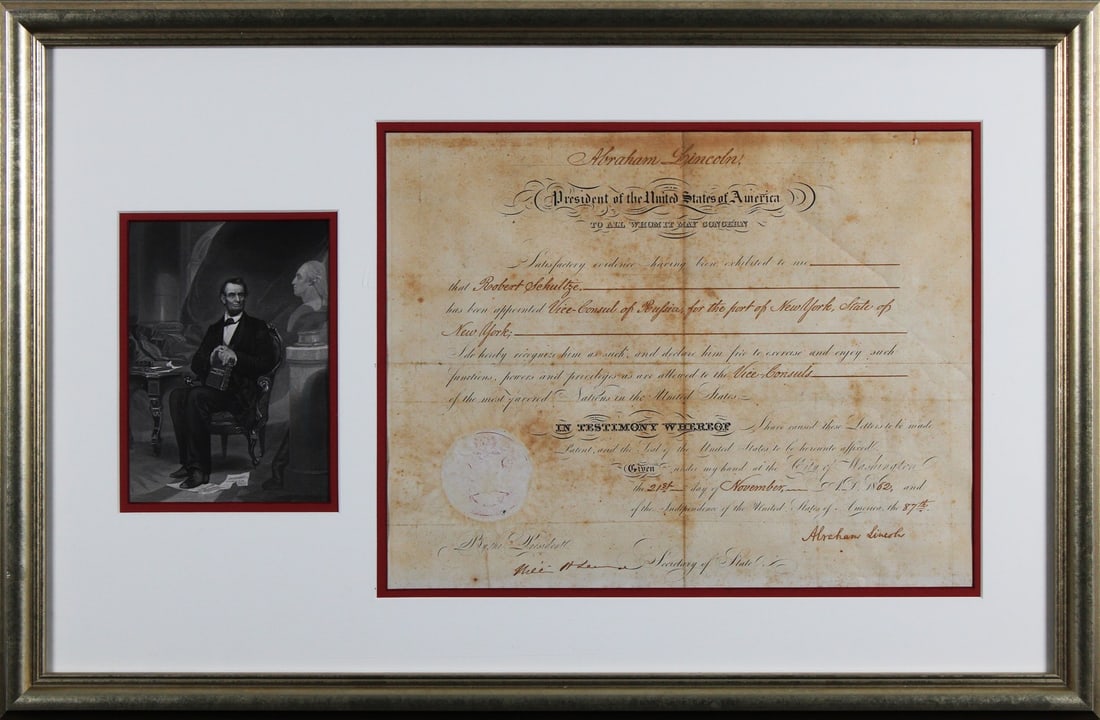 Abraham Lincoln,
President of the United States of America
TO ALL WHOM IT MAY CONCERN
Satisfactory evidence having been exhibited to me
that Robert Schultze
has been appointed Vice-Consul of Russia, for the port of New York, State of
New York;
I do hereby recognize him as such, and declare him free to exercise and enjoy such
functions, powers and privileges as are allowed to the Vice-Consuls
of the most favored Nations in the United States.
IN TESTIMONY WHEREOF I have caused these Letters to be made
Patent, and the Seal of the United States to be hereunto affixed.
Given under my hand at the City of Washington
the 21st day of November, A.D. 1862, and
of the Independence of the United States of America, the 87th.
Abraham Lincoln
By the President
Secretary of State